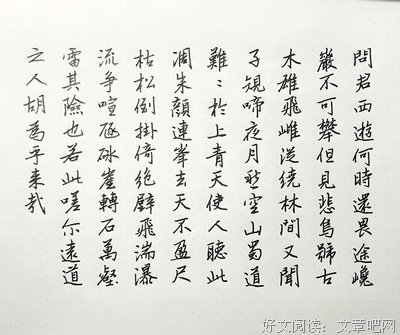 問君西遊何時還畏途巉
巖不可攀但見悲鳥號古
木雄飛雌從繞林間又聞
子規啼夜月愁空山蜀道
難:於上青天使人聽此
凋朱顏連峯去天不盈尺
枯松倒掛倚絶壁飛湍瀑
流爭喧豗砯崖轉石萬壑
雷其險也若此嗟尔遠道
之人胡為乎来哉
好文阅读：文章吧网